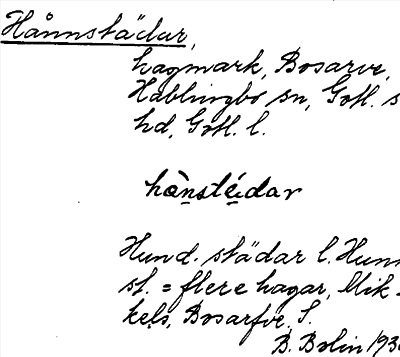 Hånnstädar,
hagmark, Bosarve,
Hablingbo sn, Gotl. s
hd, Gotl. l.
hånstédar
Hund. städar l. Hunn
st. = flere hagar, Mik-
kels, Bosarfve, S.
B. Bolin 193